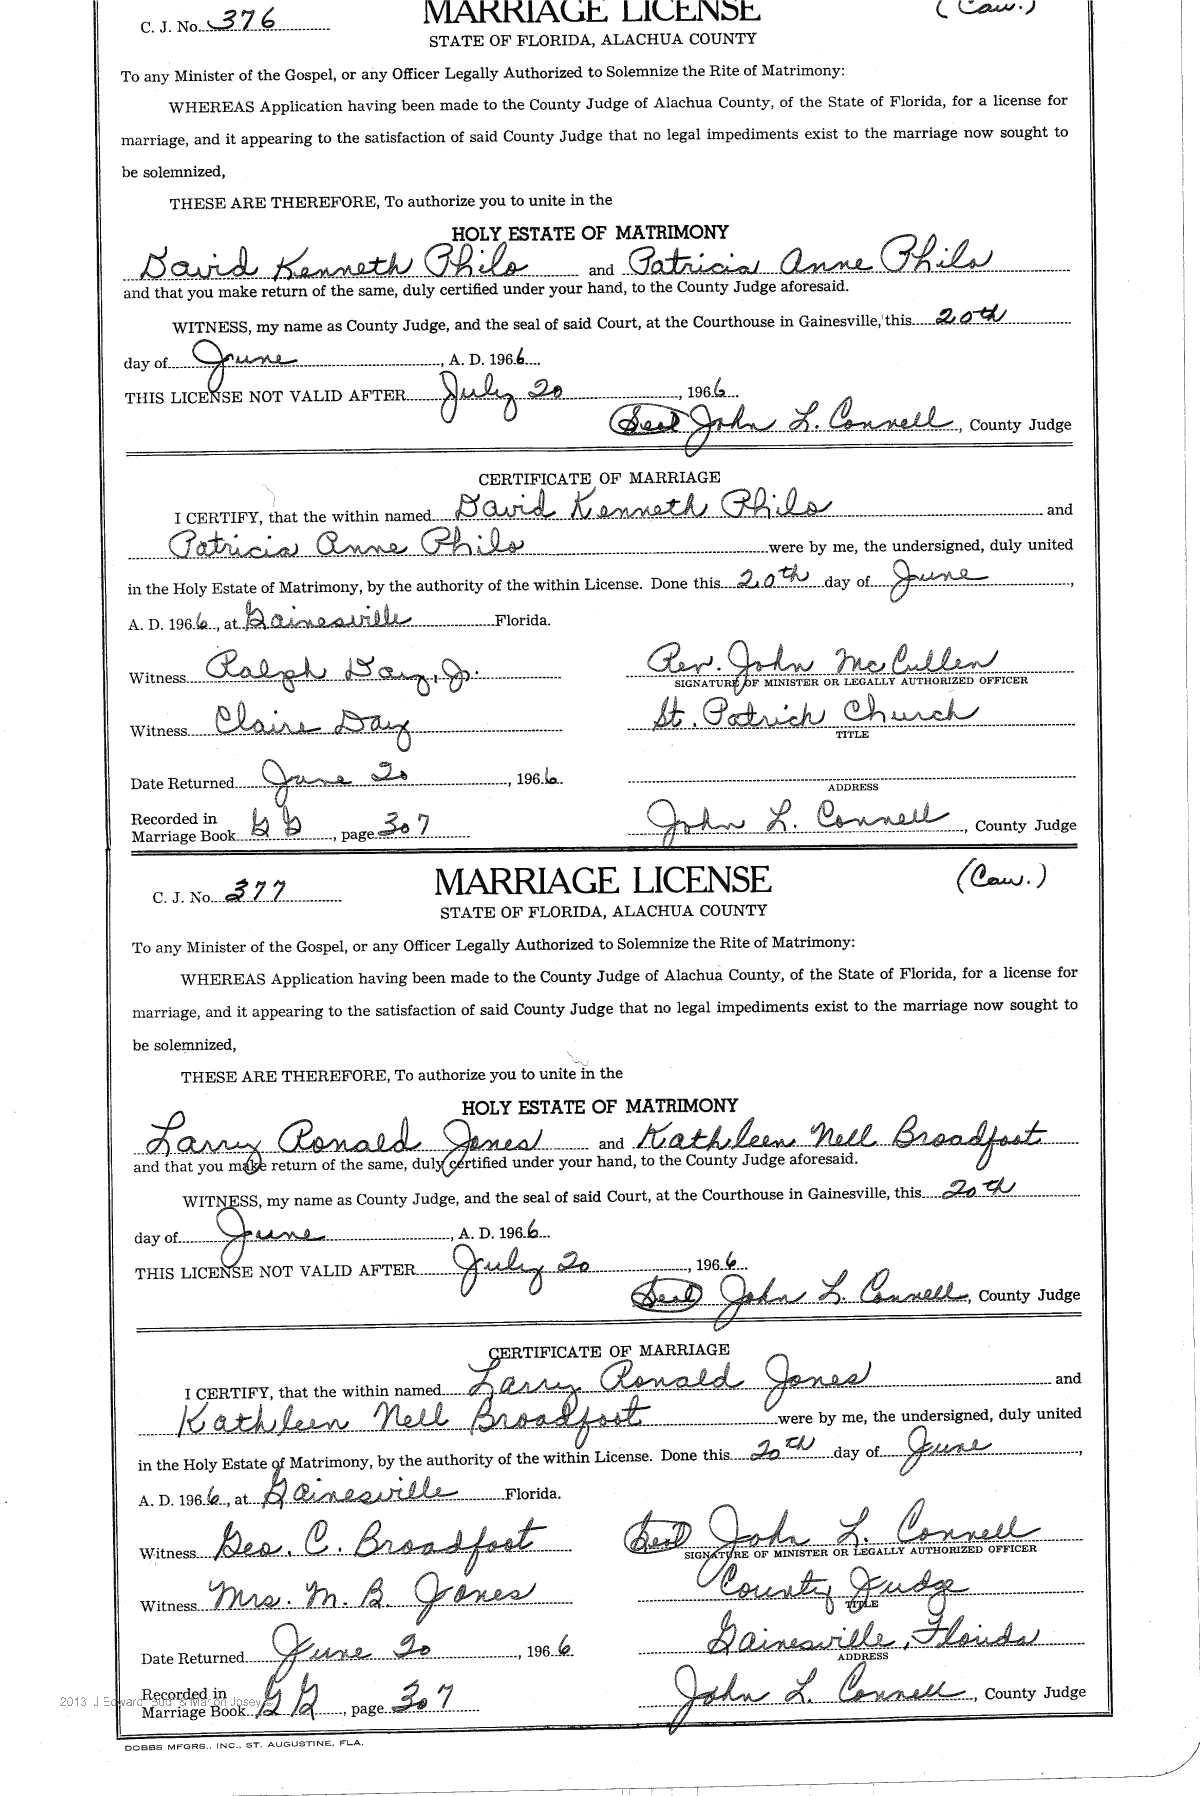 C. J. No. 376 MARRIAGE LICENSE (Caw.)
STATE OF FLORIDA, ALACHUA COUNTY
To any Minister of the Gospel, or any Officer Legally Authorized to Solemnize the Rite of Matrimony:
WHEREAS Application having been made to the County Judge of Alachua County, of the State of Florida, for a license for
marriage, and it appearing to the satisfaction of said County Judge that no legal impediments exist to the marriage now sought to
be solemnized,
THESE ARE THEREFORE, To authorize you to unite in the
HOLY ESTATE OF MATRIMONY
David Kenneth Philo and Patricia Anne Philo
and that you make return of the same, duly certified under your hand, to the County Judge aforesaid.
WITNESS, my name as County Judge, and the seal of said Court, at the Courthouse in Gainesville, this 20th
day of June, A. D. 1966
THIS LICENSE NOT VALID AFTER July 20, 1966
(Seal) John L. Connell, County Judge
CERTIFICATE OF MARRIAGE
I CERTIFY, that the within named David Kenneth Philo and
Patricia Anne Philo were by me, the undersigned, duly united
in the Holy Estate of Matrimony, by the authority of the within License. Done this 20th day of June,
A. D. 1966, at Gainesville Florida.
Witness Ralph Day, Jr. Rev. John McCullen
SIGNATURE OF MINISTER OR LEGALLY AUTHORIZED OFFICER
Witness Claire Day St. Patrick Church
TITLE
Date Returned June 20, 1966
ADDRESS
Recorded in
Marriage Book GG, page 307 John L. Connell, County Judge
C. J. No. 377 MARRIAGE LICENSE (Caw.)
STATE OF FLORIDA, ALACHUA COUNTY
To any Minister of the Gospel, or any Officer Legally Authorized to Solemnize the Rite of Matrimony:
WHEREAS Application having been made to the County Judge of Alachua County, of the State of Florida, for a license for
marriage, and it appearing to the satisfaction of said County Judge that no legal impediments exist to the marriage now sought to
be solemnized,
THESE ARE THEREFORE, To authorize you to unite in the
HOLY ESTATE OF MATRIMONY
Larry Ronald Jones and Kathleen Nell Broadfoot
and that you make return of the same, duly certified under your hand, to the County Judge aforesaid.
WITNESS, my name as County Judge, and the seal of said Court, at the Courthouse in Gainesville, this 20th
day of June, A. D. 1966
THIS LICENSE NOT VALID AFTER July 20, 1966
(Seal) John L. Connell, County Judge
CERTIFICATE OF MARRIAGE
I CERTIFY, that the within named Larry Ronald Jones and
Kathleen Nell Broadfoot were by me, the undersigned, duly united
in the Holy Estate of Matrimony, by the authority of the within License. Done this 20th day of June,
A. D. 1966, at Gainesville Florida.
Witness Geo. C. Broadfoot (Seal) John L. Connell
SIGNATURE OF MINISTER OR LEGALLY AUTHORIZED OFFICER
Witness Mrs. M. B. Jones County Judge
TITLE
Date Returned June 20, 1966 Gainesville, Florida
ADDRESS
Recorded in
2013 J Edward "Bud" & Marion Josey ©
Marriage Book GG, page 307 John L. Connell, County Judge
DOBBS MFGRS., INC., ST. AUGUSTINE, FLA.